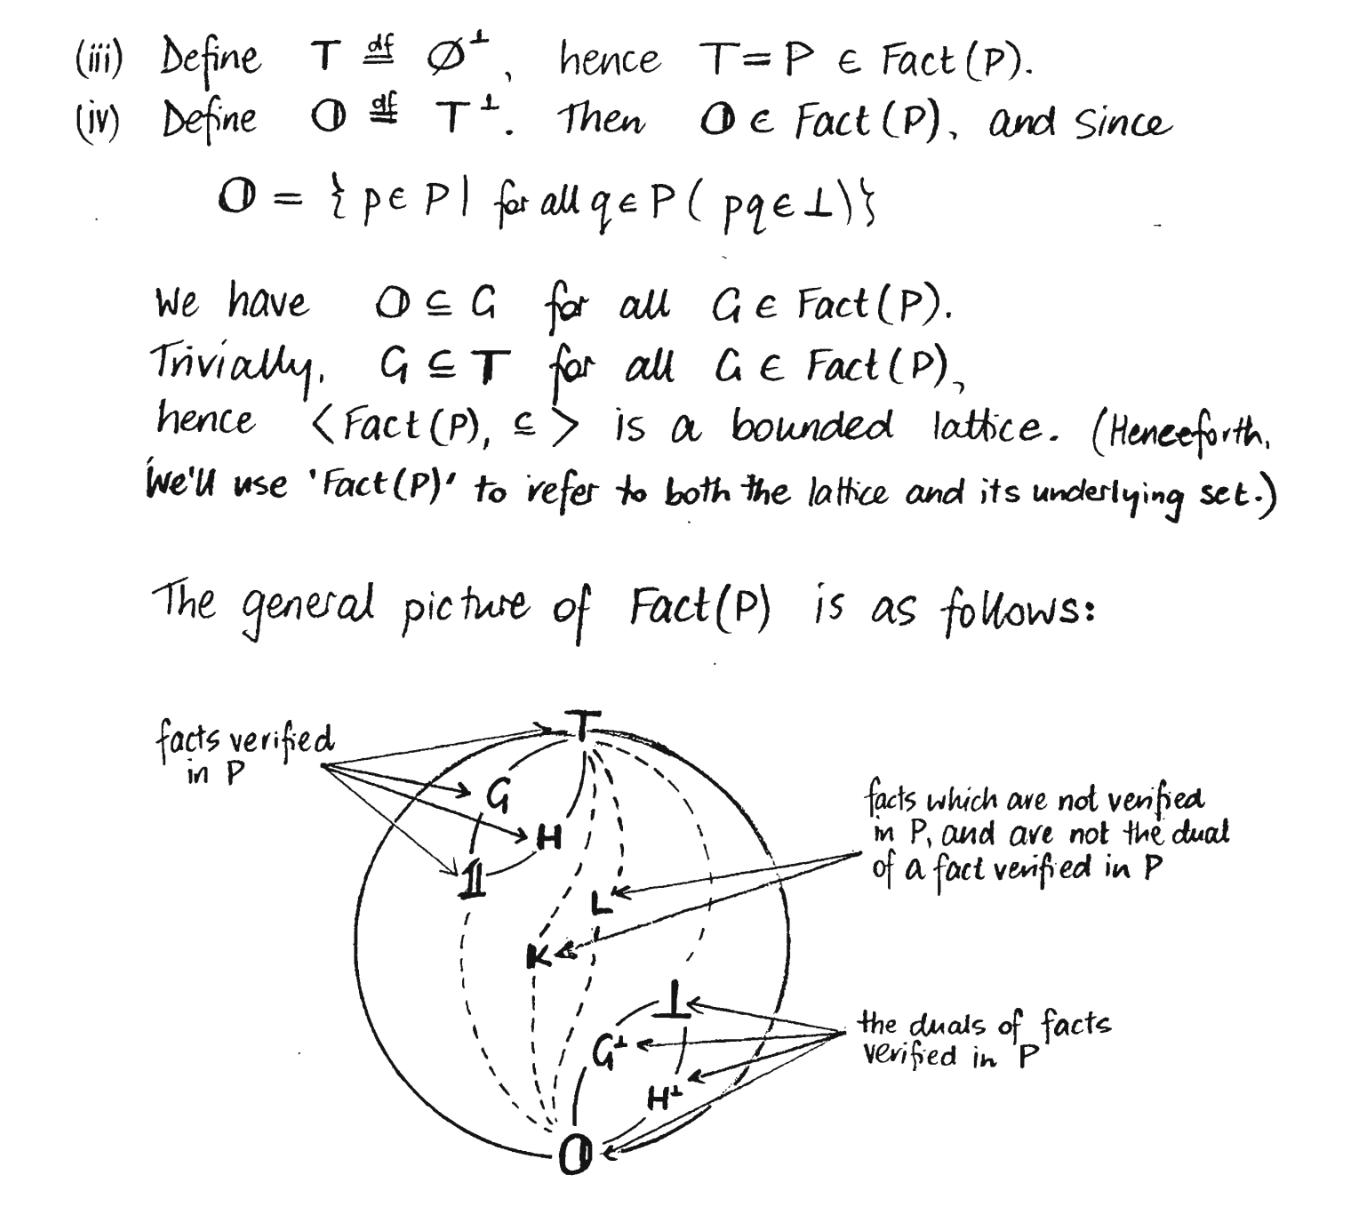 (iii) Define T ≝ ∅^⊥, hence T = P ∈ Fact(P).
(iv) Define 𝟘 ≝ T^⊥. Then 𝟘 ∈ Fact(P), and since
𝟘 = {p ∈ P | for all q ∈ P (pq ∈ ⊥)}
We have 𝟘 ⊆ G for all G ∈ Fact(P).
Trivially, G ⊆ T for all G ∈ Fact(P),
hence <Fact(P), ⊆> is a bounded lattice. (Henceforth,
we'll use 'Fact(P)' to refer to both the lattice and its underlying set.)
The general picture of Fact(P) is as follows:
T
facts verified
in P
G
H
𝟙
facts which are not verified
in P, and are not the dual
of a fact verified in P
L
K
⊥
G^⊥
H^⊥
the duals of facts
verified in P
𝟘